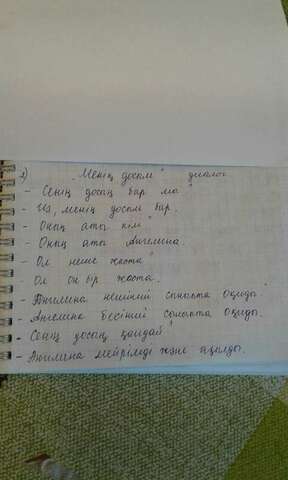 2) "Менің досым" диалог
- Сенің досың бар ма?
- Иә, менің досым бар.
- Оның аты кім?
- Оның аты Ангелина.
- Ол неше жаста?
- Ол он бір жаста.
- Ангелина нешінші сыныпта оқиды?
- Ангелина бесінші сыныпта оқиды.
- Сенің досың қандай?
- Ангелина мейірімді және ақылды.